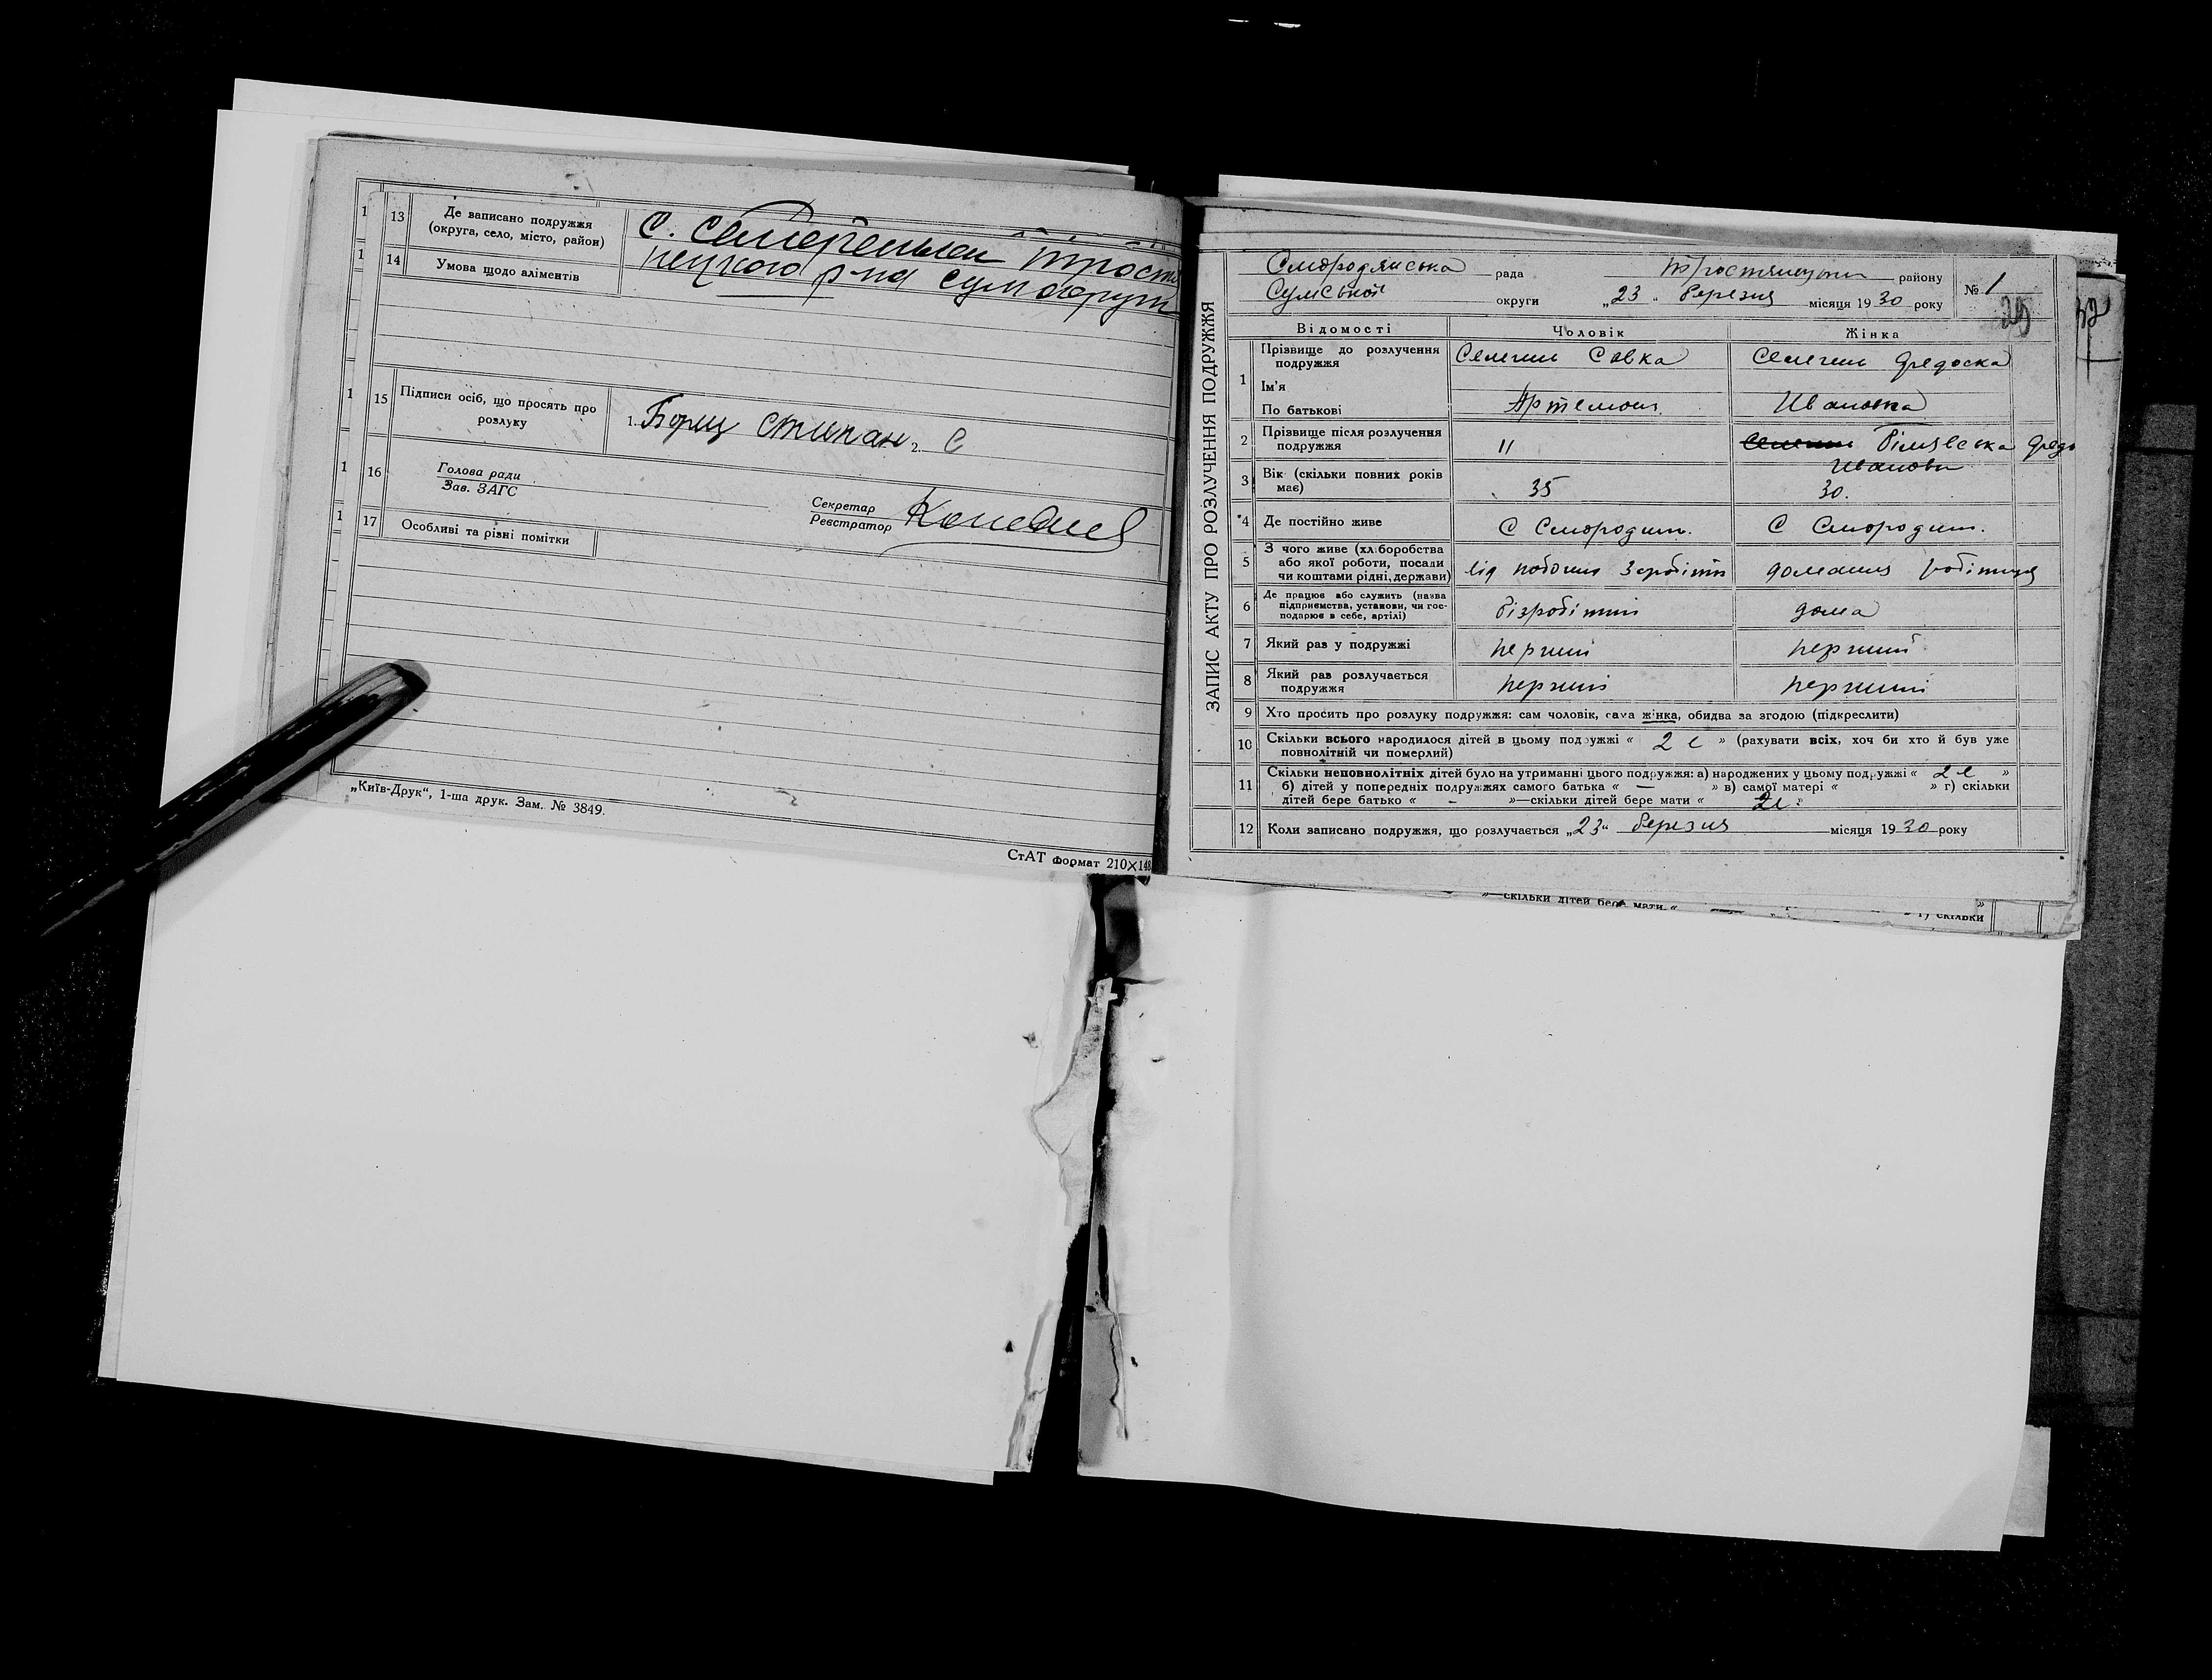 13 Де записано подружжя
(округа, село, місто, район)
С.
14 Умова щодо аліментів
р-на
15 Підписи осіб, що просять про
розлуку
1. Борщ Стипан 2. С
16 Голова ради
Зав. ЗАГС
Секретар
Реєстратор
17 Особливі та різні помітки
„Київ-Друк“, 1-ша друк. Зам. № 3849.
СтАТ формат 210×148
ЗАПИС АКТУ ПРО РОЗЛУЧЕННЯ ПОДРУЖЖЯ
Смородянська рада району № 1
Сумської округи „23“ березня місяця 1930 року
29
32
Відомості Чоловік Жінка
1 Прізвище до розлучення
подружжя
Савка
Ім’я
По батькові Артемов. Ивановна
2 Прізвище після розлучення
подружжя
11 Білявська
3 Вік (скільки повних років
має)
35 30.
4 Де постійно живе С Смородин. С Смородин.
5 З чого живе (хліборобства
або якої роботи, посади
чи коштами рідні, держави)
від домашня робітниця
6 Де працює або служить (назва
підприємства, установи, чи гос-
подарює в себе, артілі)
безробітний дома
7 Який раз у подружжі перший перший
8 Який раз розлучається
подружжя
перший перший
9 Хто просить про розлуку подружжя: сам чоловік, сама жінка, обидва за згодою (підкреслити)
10 Скільки всього народилося дітей в цьому подружжі « 2 » (рахувати всіх, хоч би хто й був уже
повнолітній чи померлий)
11 Скільки неповнолітніх дітей було на утриманні цього подружжя: а) народжених у цьому подружжі « 2 »
б) дітей у попередніх подружжях самого батька « — » в) самої матері « » г) скільки
дітей бере батько « - »—скільки дітей бере мати « 2 »
12 Коли записано подружжя, що розлучається „23“ березня місяця 1930 року
»—скільки дітей бере мати « » г) скільки